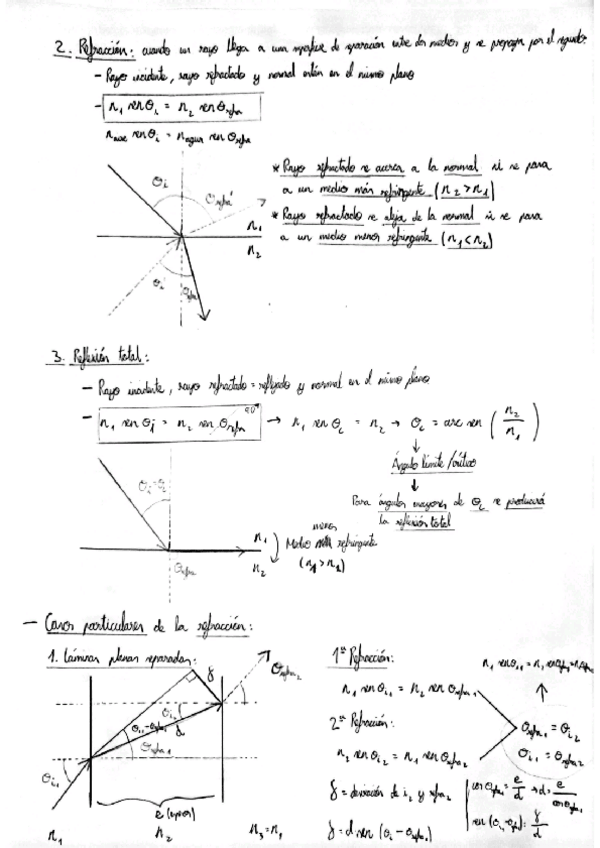 2. Refracción: cuando un rayo llega a una superficie de separación entre dos medios y se propaga por el segundo.
- Rayo incidente, rayo refractado y normal están en el mismo plano
- n₁ sen θᵢ = n₂ sen θrefra
n aire sen θᵢ = n agua sen θrefra
* Rayo refractado se acerca a la normal si se pasa
a un medio más refringente (n₂ > n₁)
* Rayo refractado se aleja de la normal si se pasa
a un medio menos refringente (n₁ < n₂)
θᵢ
n₁
n₂
θᵢ
θrefra
3. Reflexión total:
- Rayo incidente, rayo refractado = reflejado y normal en el mismo plano
- n₁ sen θᵢ = n₂ sen θrefra 90° → n₁ sen θc = n₂ → θc = arc sen (n₂/n₁)
↓
Ángulo límite/crítico
↓
Para ángulos mayores de θc se producirá
la reflexión total
θᵢ = θc
n₁
n₂
θrefra
menos
Medio refringente
- Casos particulares de la refracción:
1. Láminas planas separadas:
γ
θrefra₂
θᵢ₂
d
θᵢ₁ - θrefra₁
θrefra₁
θᵢ₁
e (espesor)
n₁
n₂
n₃ = n₁
1ª Refracción:
n₁ sen θᵢ₁ = n₂ sen θrefra₁
2ª Refracción:
n₂ sen θᵢ₂ = n₁ sen θrefra₂
θrefra₁ = θᵢ₂
θᵢ₁ = θrefra₂
γ = desviación de i₁ y refra₂
γ = d sen (θᵢ₁ - θrefra₁)
cos θrefra₁ = e/d → d = e/cos θrefra₁
sen (θᵢ - θrefra) = γ/d